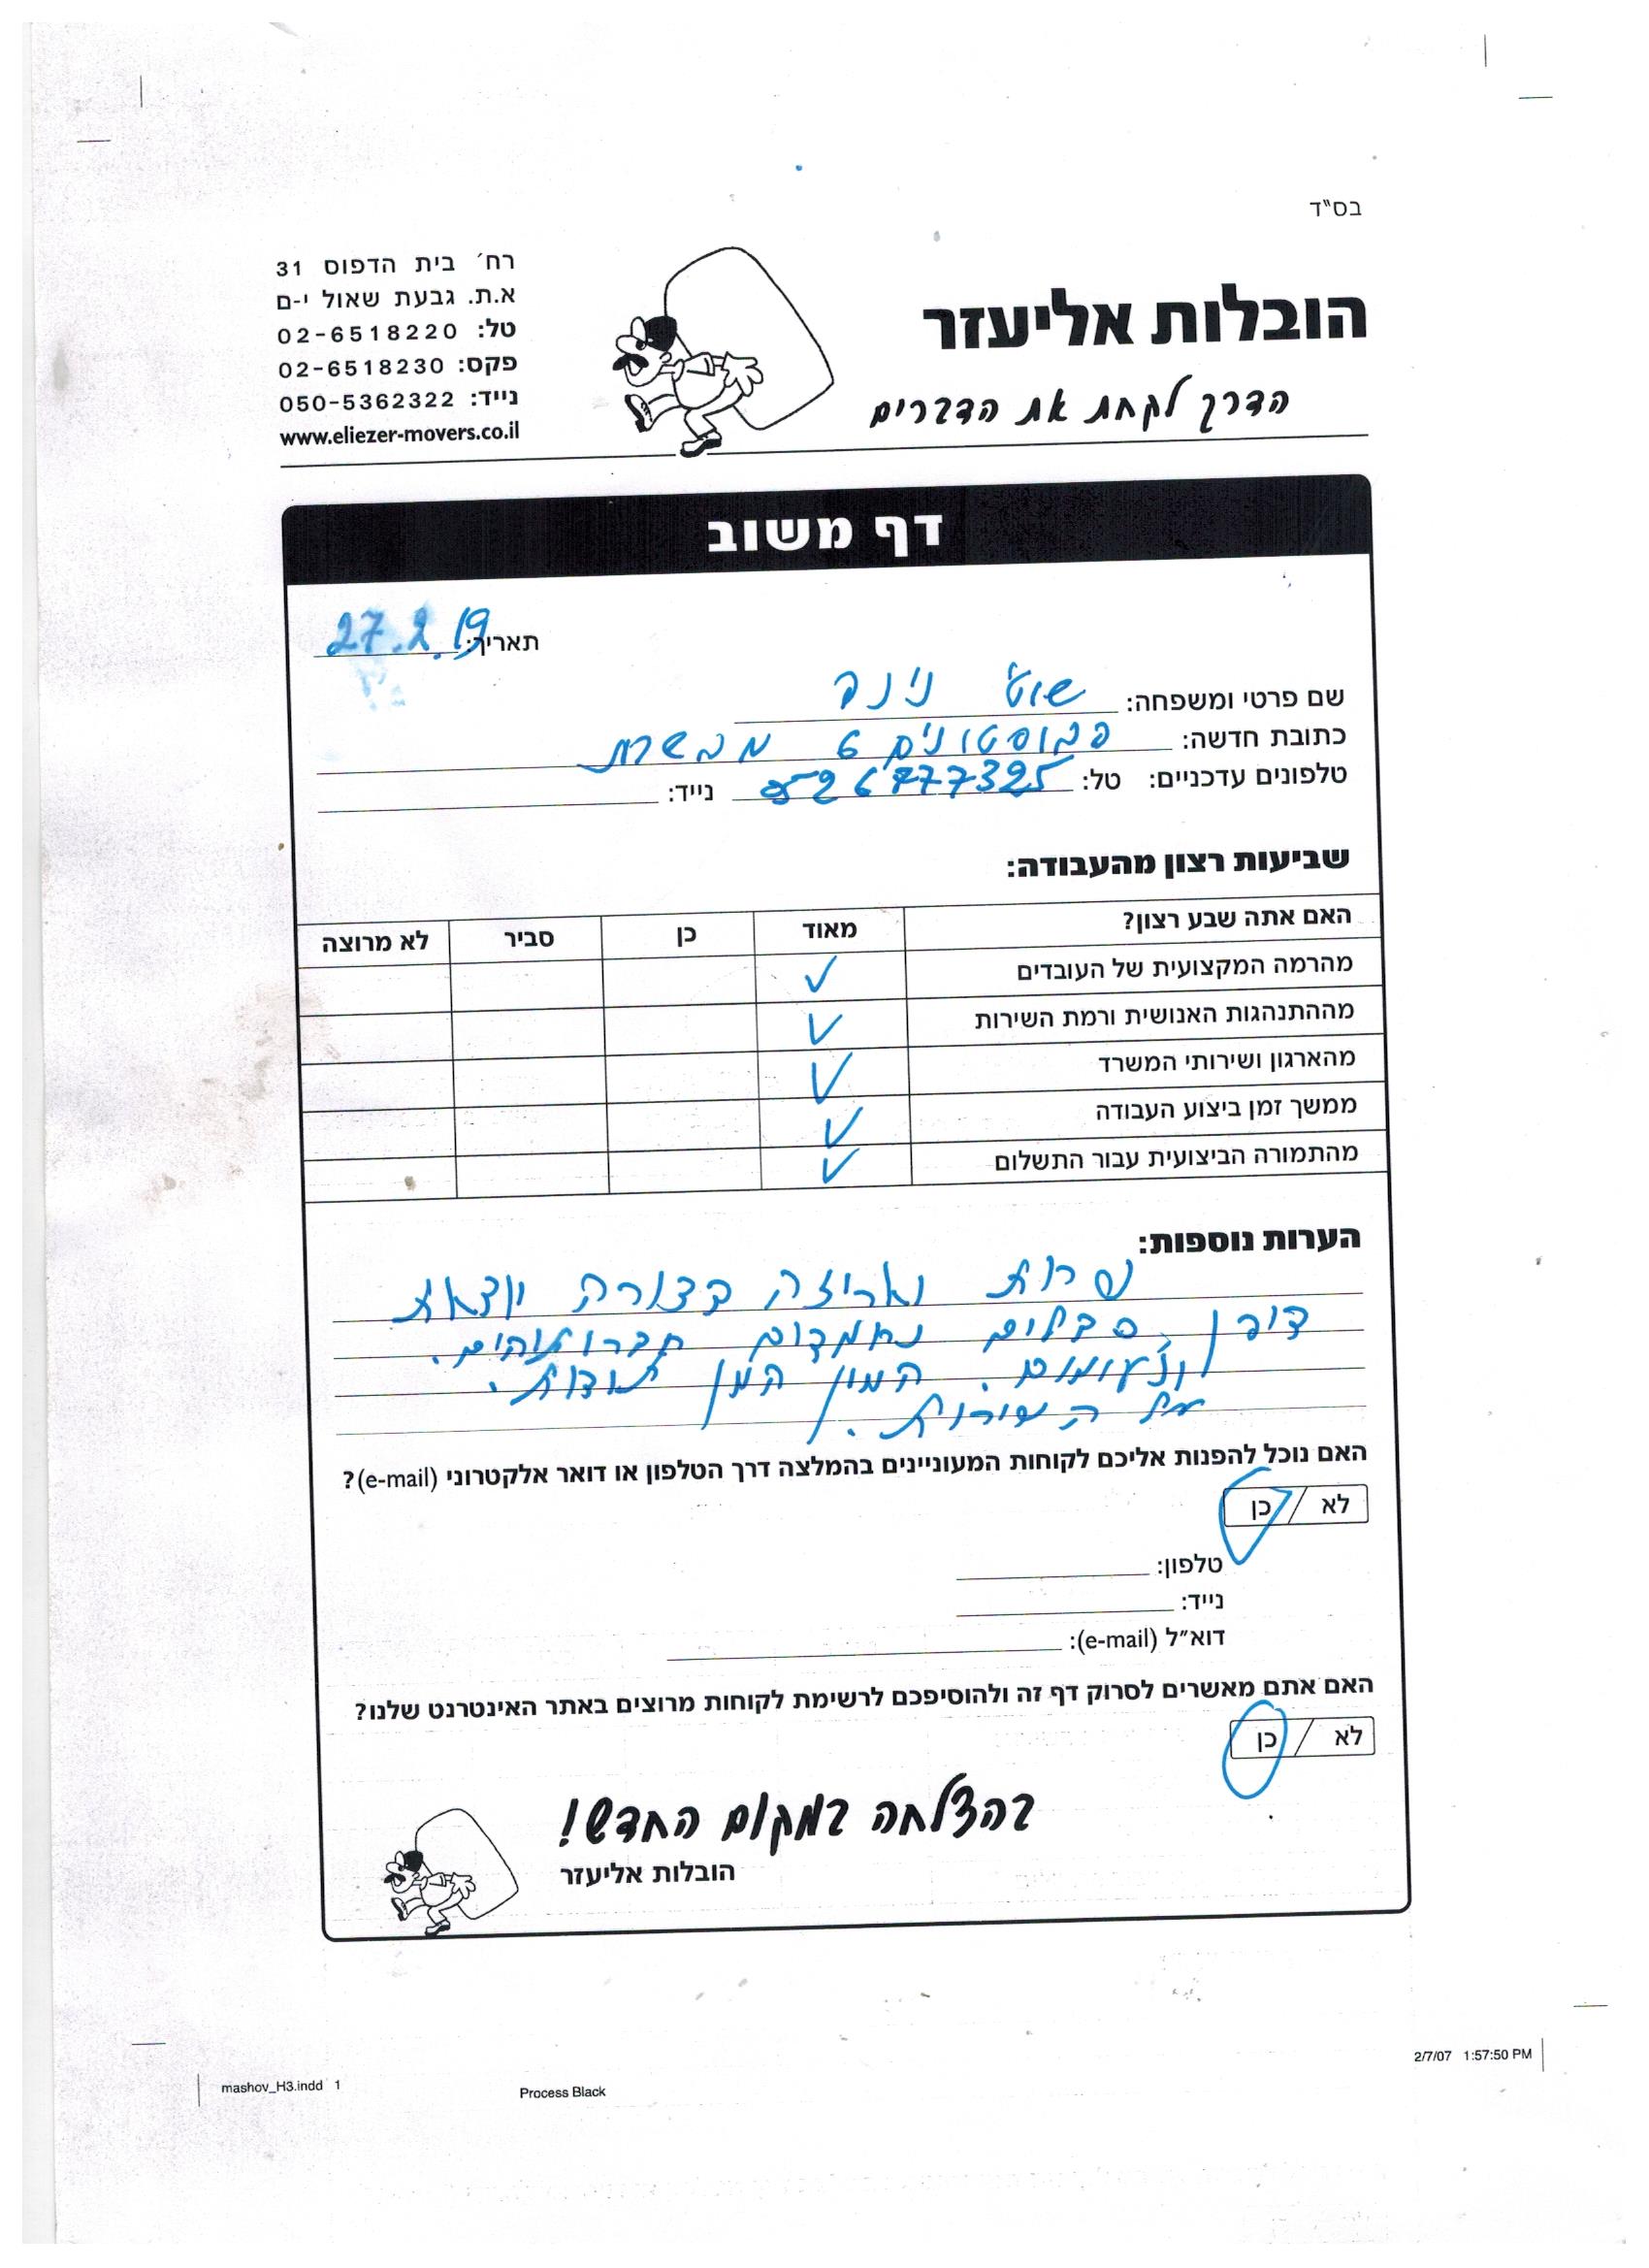 בס"ד
הובלות אליעזר
הדרך לקחת את הדברים
רח׳ בית הדפוס 31
א.ת. גבעת שאול י-ם
טל: 02-6518220
פקס: 02-6518230
נייד: 050-5362322
www.eliezer-movers.co.il
דף משוב
תאריך: 27.2.19
שם פרטי ומשפחה:
כתובת חדשה: 6 מבשרת
טלפונים עדכניים: טל: 0526777325 נייד:
שביעות רצון מהעבודה:
האם אתה שבע רצון? מאוד כן סביר לא מרוצה
מהרמה המקצועית של העובדים ✓
מההתנהגות האנושית ורמת השירות ✓
מהארגון ושירותי המשרד ✓
ממשך זמן ביצוע העבודה ✓
מהתמורה הביצועית עבור התשלום ✓
הערות נוספות:
שרות ואריזה בצורה יוצאת
דופן. סבלים נחמדים
ונעימים. המון המון תודות.
על השירות.
האם נוכל להפנות אליכם לקוחות המעוניינים בהמלצה דרך הטלפון או דואר אלקטרוני (e-mail)?
לא / כן
טלפון:
נייד:
דוא״ל (e-mail):
האם אתם מאשרים לסרוק דף זה ולהוסיפכם לרשימת לקוחות מרוצים באתר האינטרנט שלנו?
לא / כן
בהצלחה במקום החדש!
הובלות אליעזר
mashov_H3.indd 1 Process Black 2/7/07 1:57:50 PM